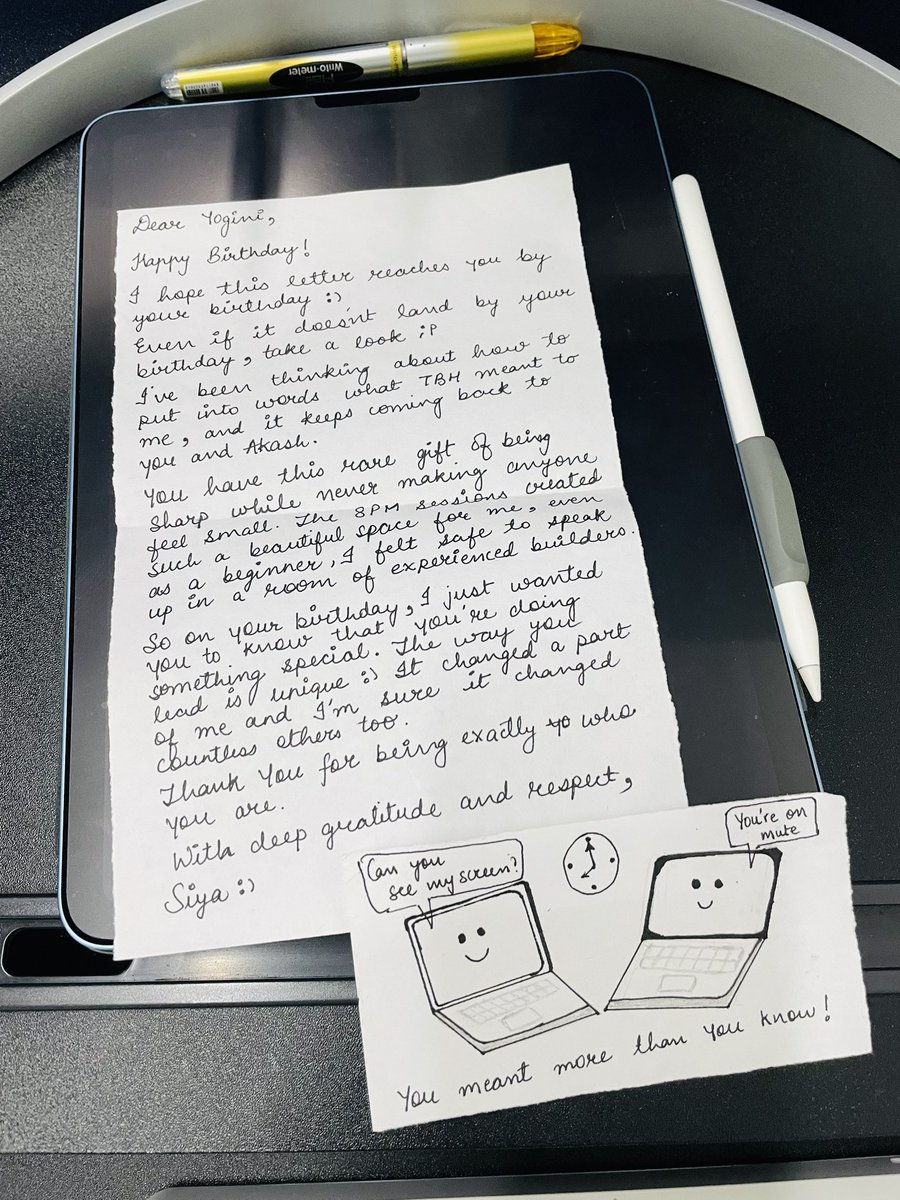 Writo-meter
Dear Yogini,
Happy Birthday!
I hope this letter reaches you by
your birthday :)
Even if it doesn't land by your
birthday, take a look ;P
I've been thinking about how to
put into words what TBH meant to
me, and it keeps coming back to
you and Akash.
You have this rare gift of being
sharp while never making anyone
feel small. The 8PM sessions created
such a beautiful space for me, even
as a beginner, I felt safe to speak
up in a room of experienced builders.
So on your birthday, I just wanted
you to know that you're doing
something special. The way you
lead is unique :) It changed a part
of me and I'm sure it changed
countless others too.
Thank You for being exactly yo who
you are.
With deep gratitude and respect,
Siya :)
Can you
see my screen?
You're on
mute
You meant more than you know!